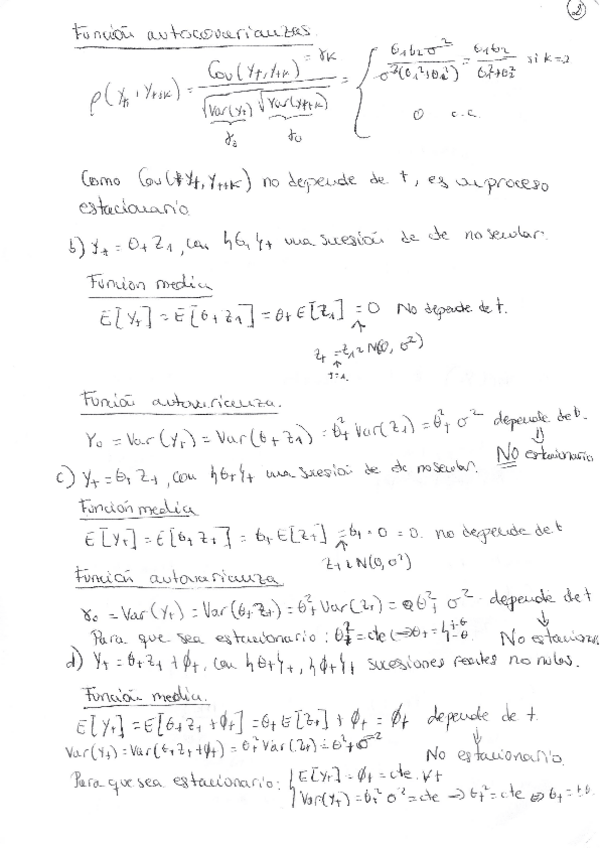 2
Función autocovarianzas.
ρ(Yt, Yt+k) = Cov(Yt, Yt+k) = γk / √Var(Yt) √Var(Yt+k) = { θ1θ2σ² / σ²(θ1²+θ2²) = θ1θ2 / θ1²+θ2² si k=2
γ0 γ0 0 c.c.
Como Cov(Yt, Yt+k) no depende de t, es un proceso
estacionario
b) Yt = θt Z1, con {θt}t una sucesión de cte no seculares.
Función media
E[Yt] = E[θt Z1] = θt E[Z1] = 0 No depende de t.
Zt = Z1 ~ N(0, σ²)
t=1.
Función autovarianza.
γ0 = Var(Yt) = Var(θt Z1) = θt² Var(Z1) = θt² σ² depende de t.
NO estacionario
c) Yt = θt Zt, con {θt}t una sucesión de cte no seculares.
Función media
E[Yt] = E[θt Zt] = θt E[Zt] = θt · 0 = 0. no depende de t
Zt ~ N(0, σ²)
Función autovarianza
γ0 = Var(Yt) = Var(θt Zt) = θt² Var(Zt) = θt² σ² depende de t
Para que sea estacionario: θt² = cte ⇔ θt = {+θ -θ. No estacionario
d) Yt = θt Zt + ϕt, con {θt}t, {ϕt}t sucesiones reales no nulas.
Función media.
E[Yt] = E[θt Zt + ϕt] = θt E[Zt] + ϕt = ϕt depende de t.
Var(Yt) = Var(θt Zt + ϕt) = θt² Var(Zt) = θt² σ² No estacionario
Para que sea estacionario: { E[Yt] = ϕt = cte. ∀t
Var(Yt) = θt² σ² = cte → θt² = cte ⇔ θt = ±θ.